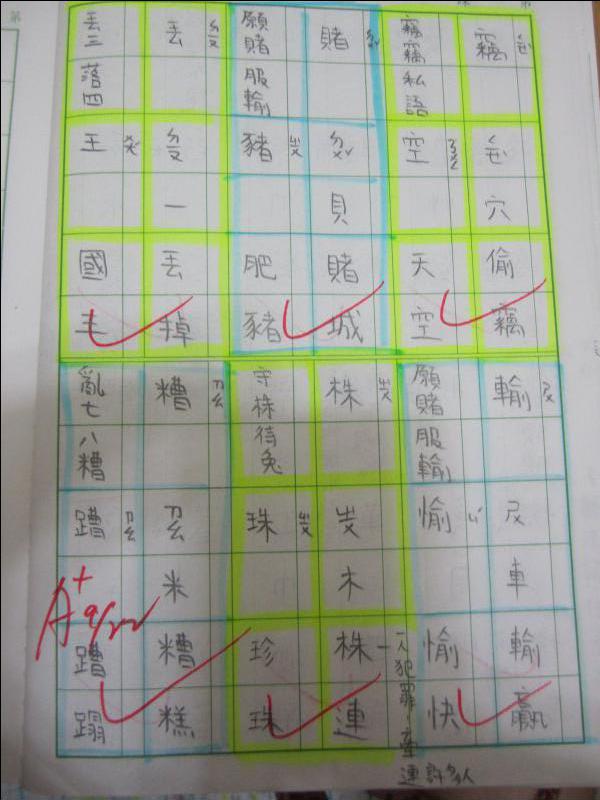 竊 ㄑㄧㄝˋ
ㄑㄧㄝˋ 穴 偷竊
竊竊私語
空 ㄎㄨㄥ 天空
賭 ㄉㄨˇ
ㄉㄨˇ 貝 賭城
願賭服輸
豬 ㄓㄨ 肥豬
丟
一 丟掉
丟三落四
王 ㄨㄤˊ 國王
輸 ㄕㄨ
ㄕㄨ 車 輸贏
願賭服輸
愉 ㄩˊ 愉快
株 ㄓㄨ
ㄓㄨ 木 株連
一人犯罪，牽連許多人
守株待兔
珠 ㄓㄨ 珍珠
糟 ㄗㄠ
ㄗㄠ 米 糟糕
亂七八糟
蹧 ㄗㄠ 蹧蹋
A+